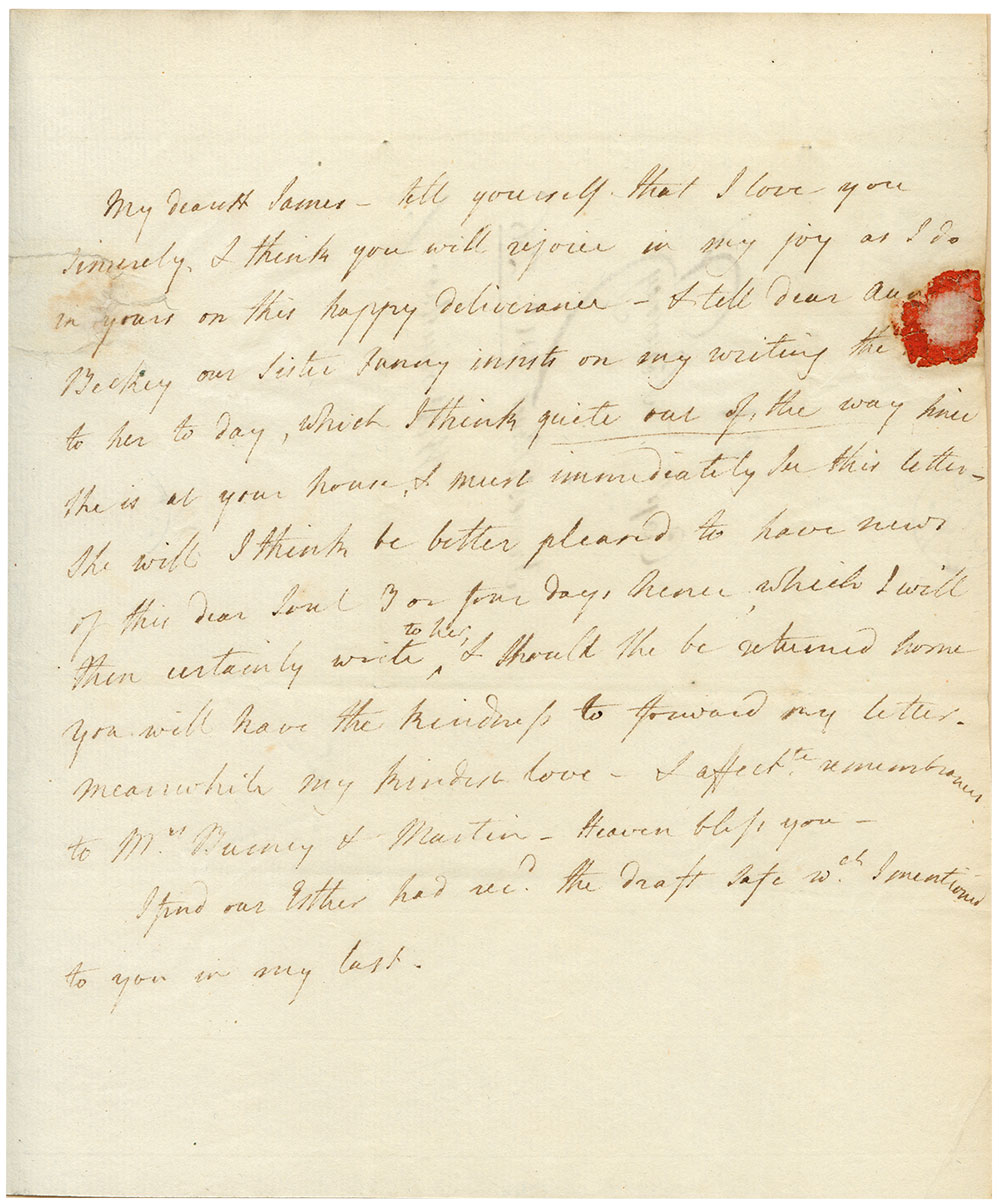 My dearest James – tell yourself that I love you
sincerely, & think you will rejoice in my joy as I do
in yours on this happy deliverance – & tell dear Au
Beckey our Sister Fanny insists on my writing the
to her to day, which I think quite out of the way since
she is at your house, & must immediately see this letter –
she will I think be better pleased to have news
of this dear Soul 3 or four days hence, which I will
then certainly write to her, & should she be returned home
you will have the kindness to forward my letter.
meanwhile my kindest love – & affectte remembrances
to Mrs Burney & Martin – Heaven bless you –
I find our Esther had recd the draft safe wch I mentioned
to you in my last.